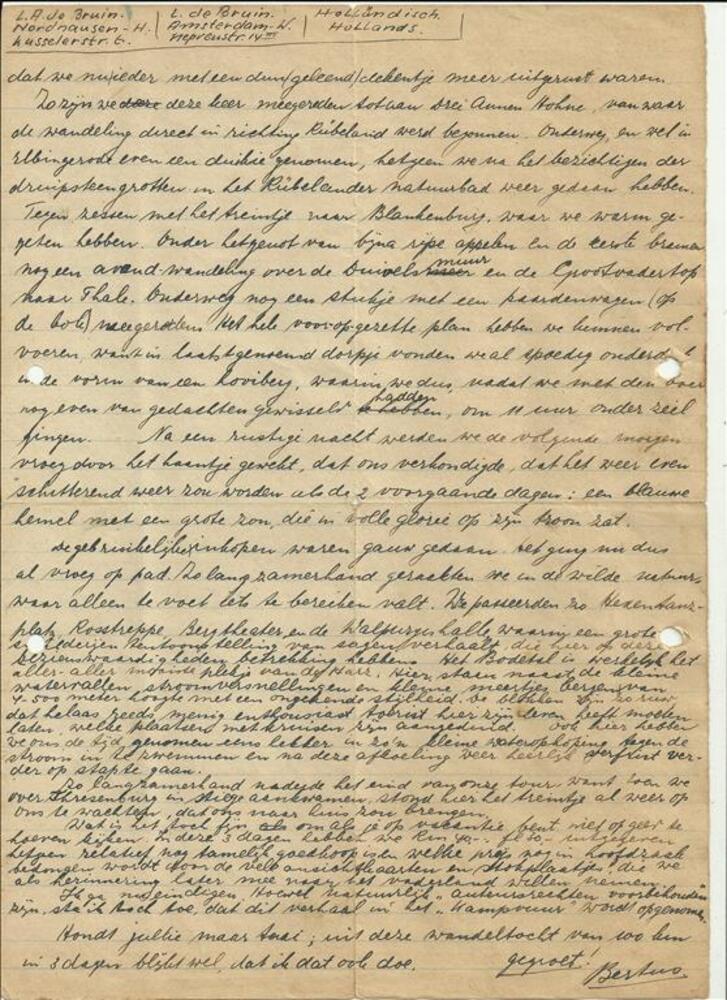 L.A. de Bruin.
Nordhausen-H.
Kasselerstr. 6.
L. de Bruin.
Amsterdam-W.
Holländisch
Hollands.
dat we nu ieder met een dun (geleend) dekentje meer uitgerust waren.
Zo zijn we deze keer meegereden tot aan Drei Annen Hohne, van waar
de wandeling direct in richting Rübeland werd begonnen. Onderweg, en wel in
Elbingerode even een duikje genomen, hetgeen we na het bezichtigen der
druipsteengrotten in het Rübelander natuurbad weer gedaan hebben.
Tegen zessen met het treintje naar Blankenburg, waar we warm ge-
geten hebben. Onder het genot van bijna rijpe appelen en de eerste bramen
nog een avond-wandeling over de Duivelsmuur en de Grootvadertop
naar Thale. Onderweg nog een stukje met een paardenwagen (op
de bok) meegereden. Het hele voorop gezette plan hebben we kunnen vol-
voeren, want in laatstgenoemd dorpje vonden we al spoedig
in de vorm van een hooiberg, waarin we dus, nadat we met den boer
nog even van gedachten gewisseld hadden, om 11 uur onder zeil
gingen. Na een rustige nacht werden we de volgende morgen
vroeg door het haantje gewekt, dat ons verkondigde, dat het weer even
schitterend weer zou worden als de 2 voorgaande dagen: een blauwe
hemel met een grote zon, die in volle glorie op zijn troon zat.
De gebruikelijke inkopen waren gauw gedaan. Het ging nu dus
al vroeg op pad. Zo langzamerhand geraakten we in de wilde natuur,
waar alleen te voet iets te bereiken valt. We passeerden zo Hexentanz-
platz, Rosstreppe, Bergtheater, en de Walpurgishalle, waarin een grote
schilderijen tentoonstelling van sagen verhaalt, die hier op deze
bezienswaardigheden betrekking hebben. Het Bodetal is werkelijk het
aller-aller mooiste plekje van de Harz. Hier staan naast de kleine
watervallen, stroomversnellingen en kleine meertjes bergen van
4-500 meter hoogte met een ongekende stilheid. De blokken zijn zo ruw
dat helaas reeds menig enthousiast toerist hier zijn leven heeft moeten
laten, welke plaatsen met kruisen zijn aangeduid. Ook hier hebben
we ons de tijd genomen eens lekker in zo'n kleine waterophoping tegen de
stroom in te zwemmen en na deze afkoeling weer heerlijk verfrist ver-
der op stap te gaan.
Zo langzamerhand naderde het eind van onze tour want toen we
over Thresenburg in Stiege aankwamen, stond hier het treintje al weer op
ons te wachten, dat ons naar huis zou brengen.
Wat is het toch fijn om als je op vacantie bent, niet op geld te
hoeven kijken. In deze 3 dagen hebben we uitgegeven
hetgeen relatief nog tamelijk goedkoop is en welke prijs nog in hoofdzaak
bedongen wordt door de vele ansichtkaarten en stokplaatjes, die we
als herinnering later mee naar het vaderland willen nemen.
Ik ga nu eindigen. Hoewel natuurlijk "auteursrechten voorbehouden"
zijn, sta ik toch toe, dat dit verhaal in het "Kampvuur" word opgenomen.
Houdt jullie maar taai; uit deze wandeltocht van 100 km
in 3 dagen blijkt wel, dat ik dat ook doe.
gegroet!
Bertus.